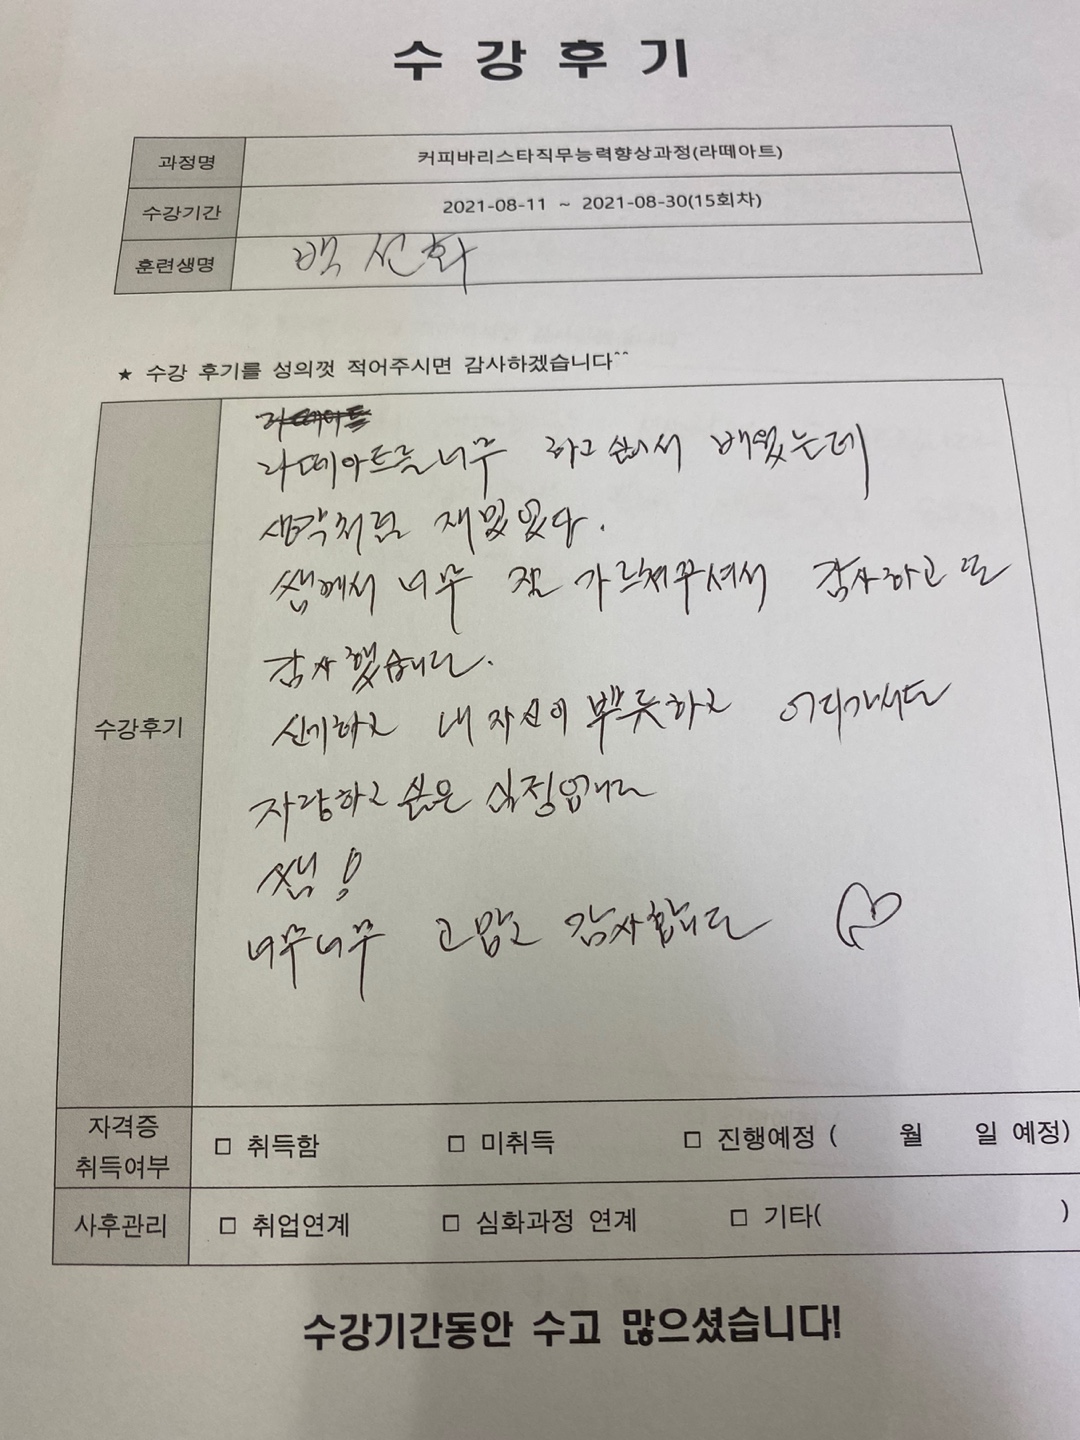 수 강 후 기
과정명 커피바리스타직무능력향상과정(라떼아트)
수강기간 2021-08-11 ~ 2021-08-30(15회차)
훈련생명 백선화
★ 수강 후기를 성의껏 적어주시면 감사하겠습니다^^
수강후기
라떼아트
라떼아트를 너무 하고싶어서 배웠는데
생각처럼 재밌었다.
쌤께서 너무 잘 가르쳐주셔서 감사하고 또
감사했습니다.
신기하고 내 자신이 뿌듯하고 어디가서도
자랑하고 싶은 심정입니다
쌤!
너무너무 고맙고 감사합니다
자격증 취득여부 □ 취득함 □ 미취득 □ 진행예정 ( 월 일 예정)
사후관리 □ 취업연계 □ 심화과정 연계 □ 기타( )
수강기간동안 수고 많으셨습니다!